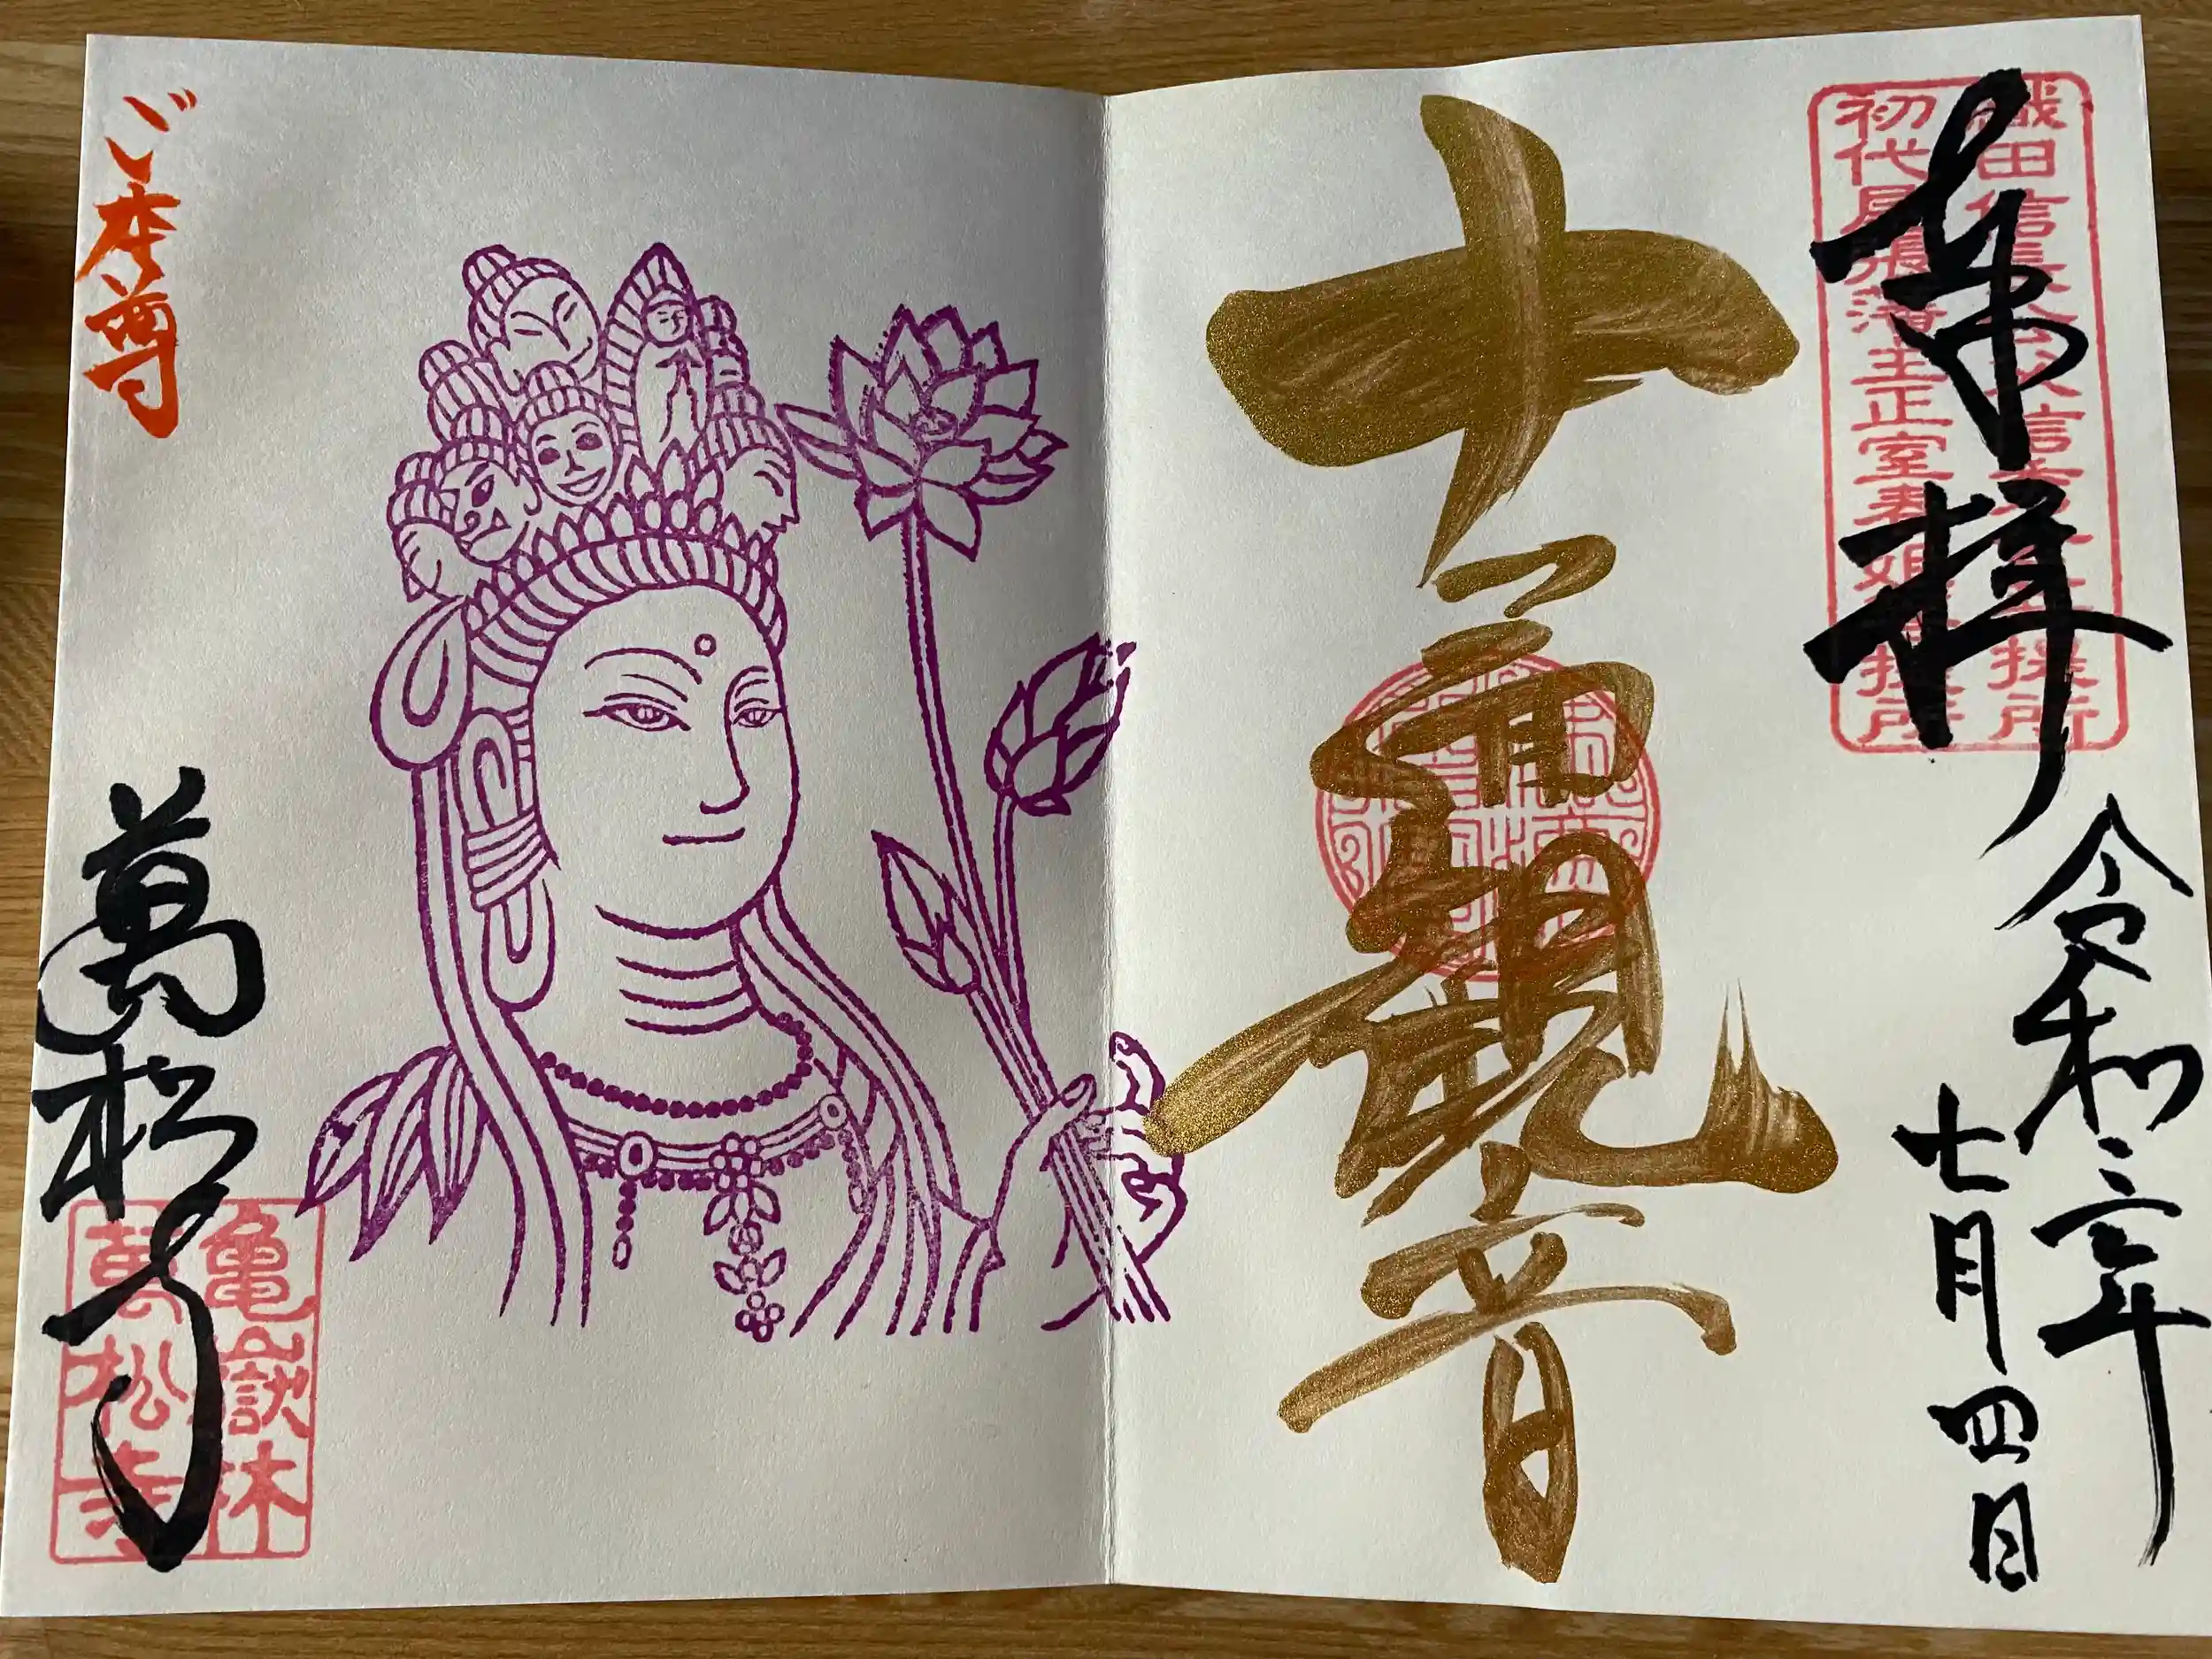 奉拝
織田信長公父信秀公菩提所
初代尾張藩主正室春姫菩提所
令和三年
七月四日
十一面觀音
ご本尊
萬松寺
亀嶽林
萬松寺